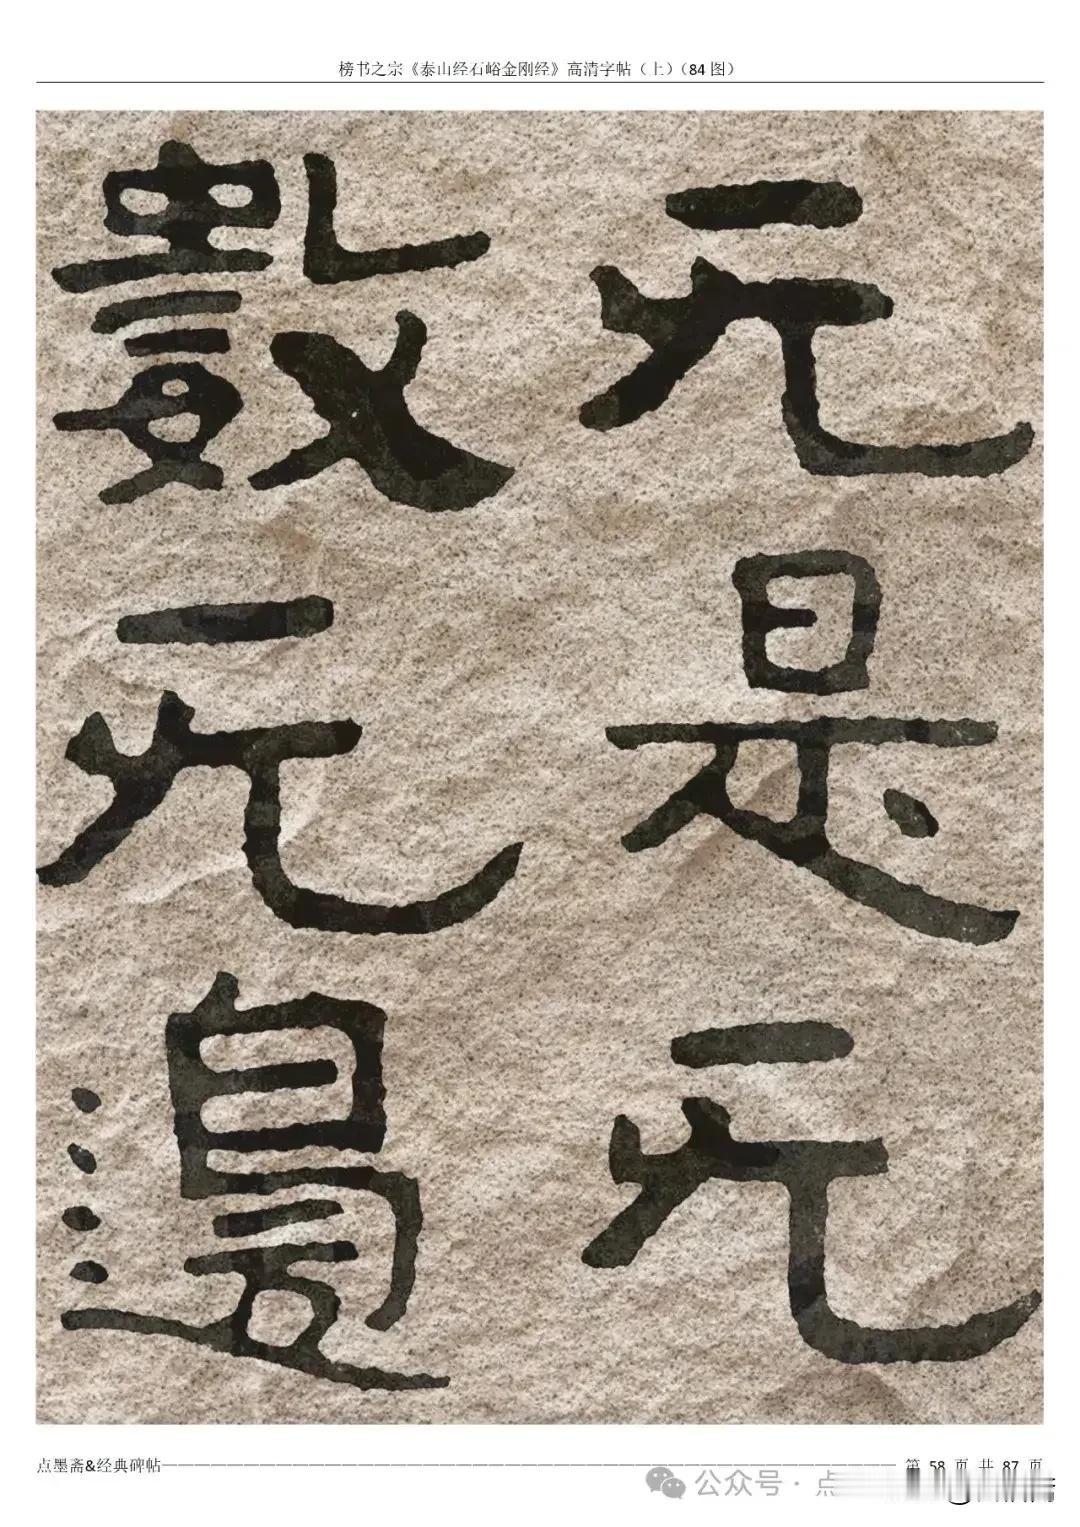 榜书之宗《泰山经石峪金刚经》高清字帖（上）（84 图）
元是元
數元邊
点墨斋&经典碑帖————————第 58 页 共 87 页
公众号 · 点